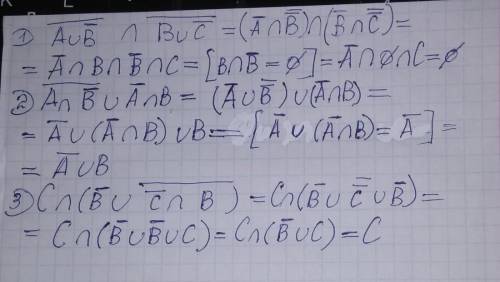 ① A̅∪̅B̿ ∩ B̅∪̅C̿ = (A̅∩B̿)∩(B̅∩C̿) =
= A̅∩B∩B̅∩C = [B∩B̅ = ∅] = A̅∩∅∩C = ∅
② A̅∩̅B̿ ∪ A̅∩B = (A̅∪B̿)∪(A̅∩B) =
= A̅∪(A̅∩B)∪B = [A̅∪(A̅∩B) = A̅] =
= A̅∪B
③ C∩(B̅∪ C̿∩̅B̅) = C∩(B̅∪C̿∪B̅) =
= C∩(B̅∪B̅∪C) = C∩(B̅∪C) = C